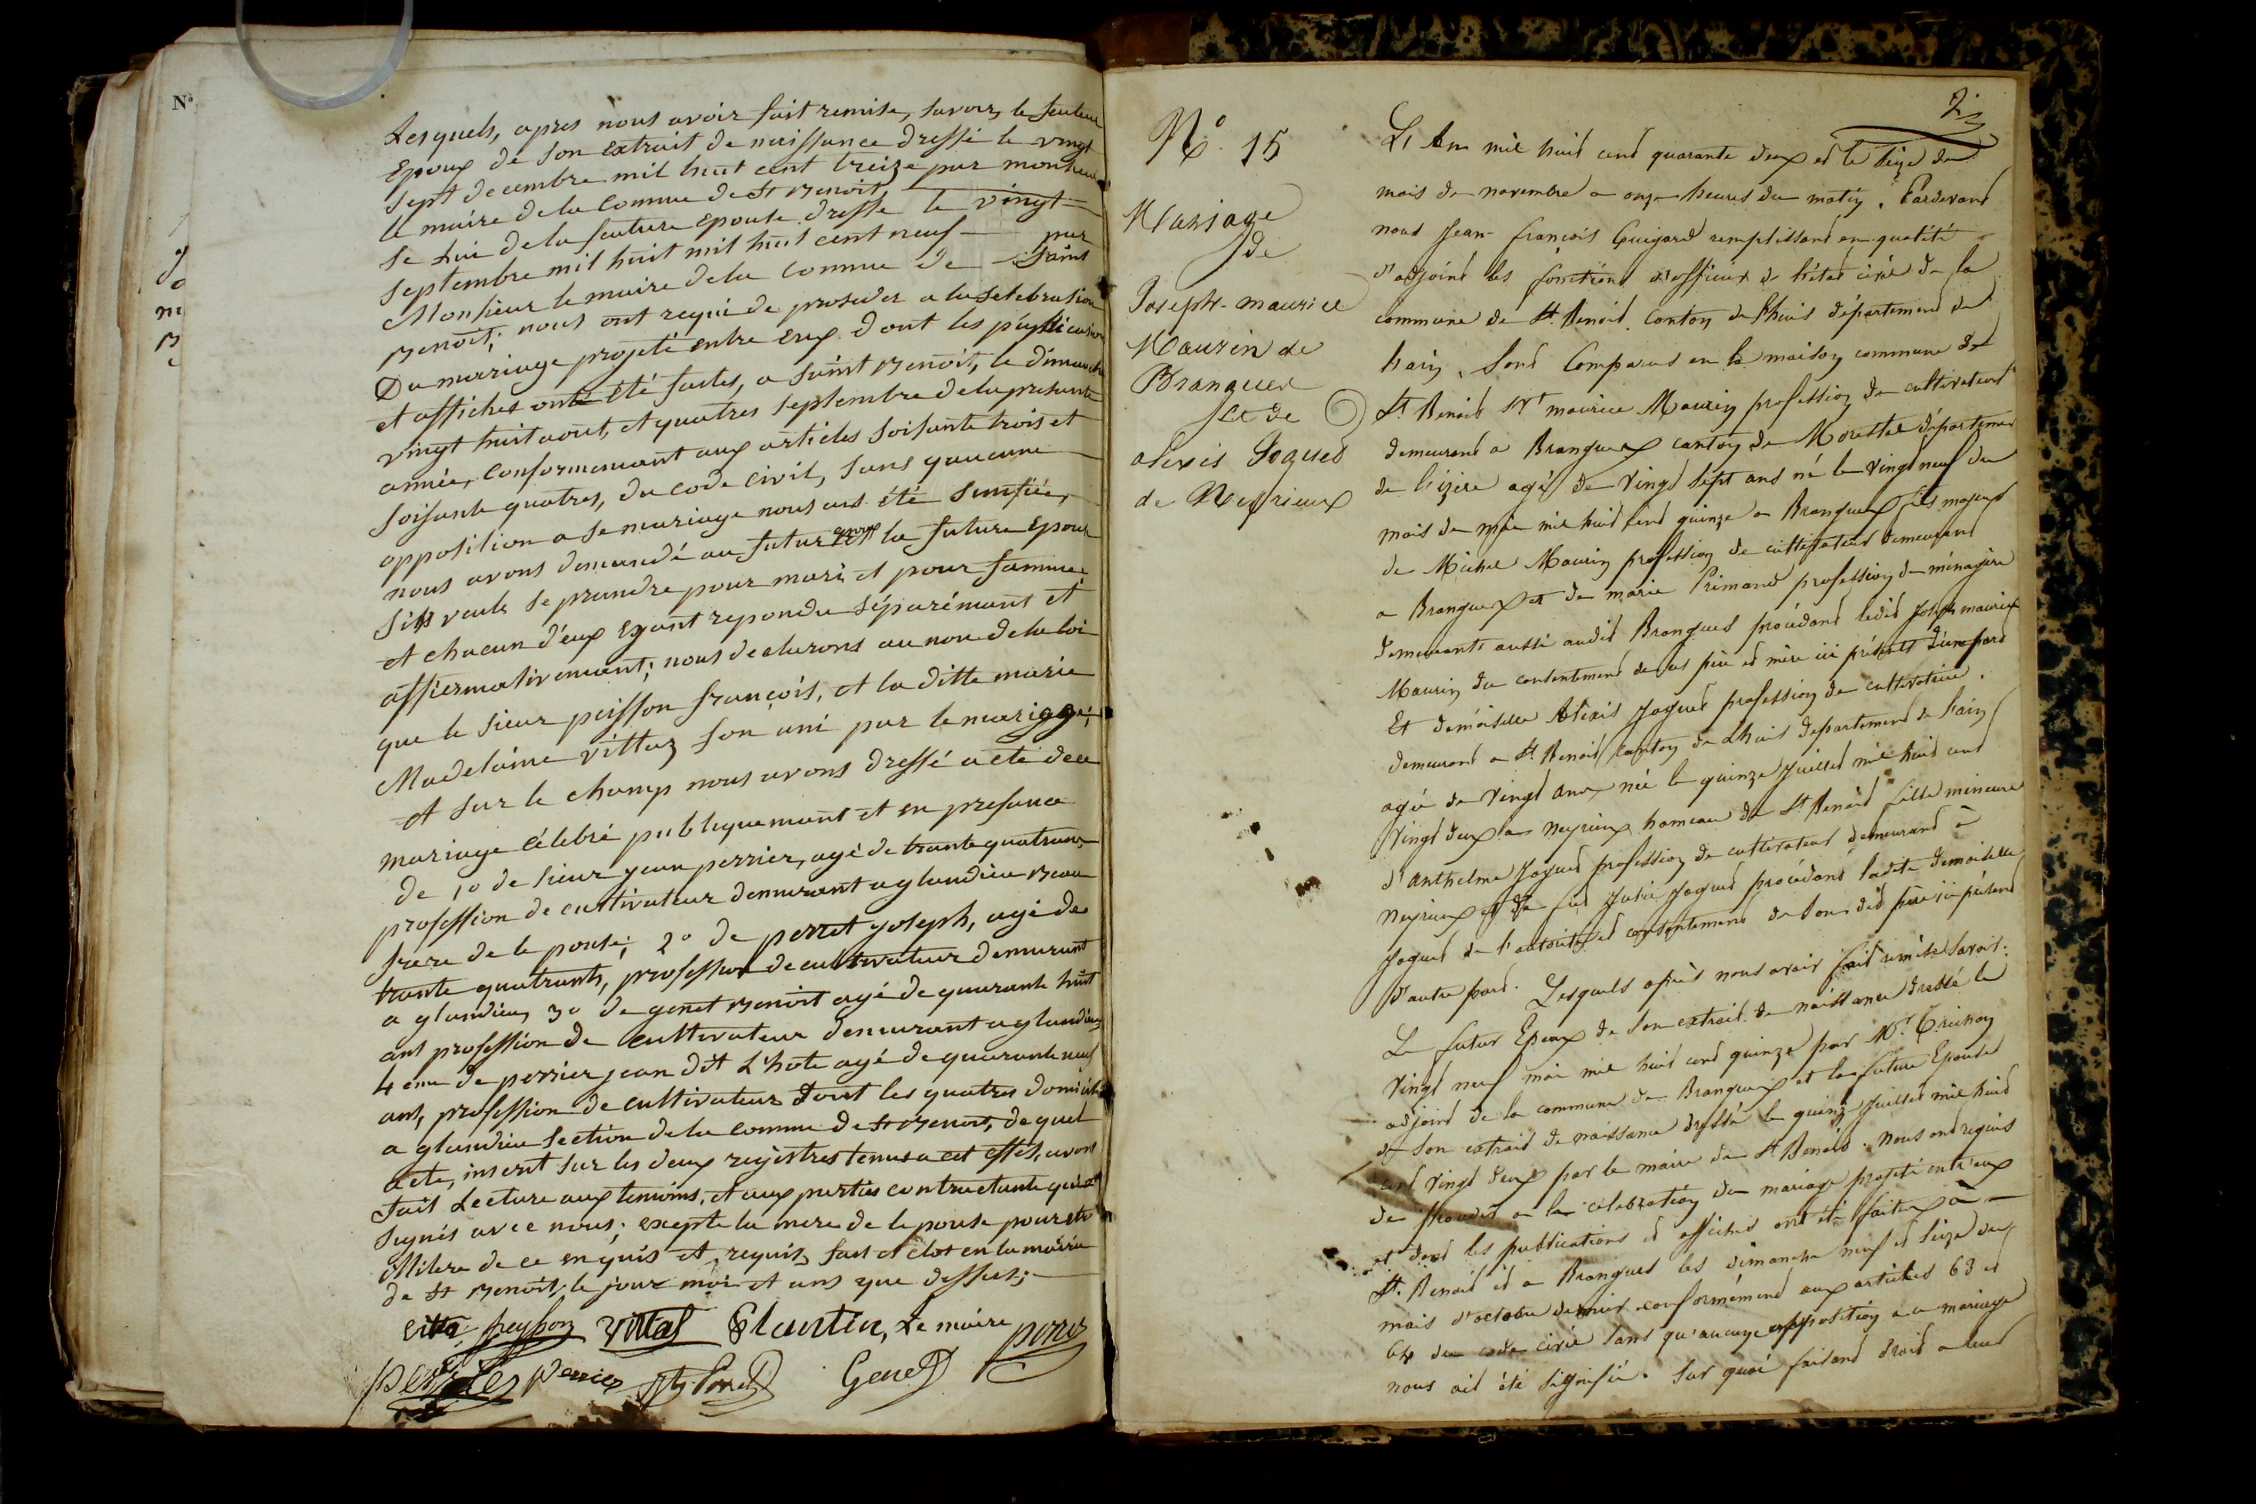 N°
Lesquels, apres nous avoir fait remise, savoir, le feuteur
Epoux de son extrait de naissance dressé le vingt
sept decembre mil huit cent treize par monsieur
le maire de la Commue de St Benoit,
se lui de la feuture Epouse dresse le vingt
septembre mil huit mil huit cent neuf par
Monsieur le maire de la Commue de saint
Benoît; nous ont requi de proseder a la selebration
Du mariage projeté entre eux dont les publications
et affiches onts été faites, a saint Benoit, le dimanche
vingt huit aout, et quatres septembre de la presente
année, conformemant aux articles soisante trois et
soisante quatres, du code civil, sans qu'aucune
opposition a se mariage nous ait été sinifiée,
nous avons demandé au futur epoux et la future Epouse
sils veule se prandre pour mari et pour famme,
et chacun d'eux eyant repondu séparémant et
affiermativemant; nous declarons au non de la loi
que le sieur peisson françois, et la ditte marie
Madelaine vittoz son uni par le mariage;
et sur le champ nous avons dressé acte de ce
mariage célebré publiquemant et en presance
de 1° de sieur jean perrier, agé de trante quatrans
profession de cultivateur demurant a glandieu Beau
frere de le pouse; 2° de perret joseph, agé de
trante quatrants, profession de cultivateur demurant
a glandieu, 3° de genet Benoit agé de quarante huit
ans profession de cultivateur demurant a glandieu
4eme de perrier jean dit L'hote agé de quarante neuf
ans, profession de cultivateur dont les quatres domicilié
a glandieu section de la commue de St Benoit, de quel
acte, inserit sur les deux registres tenus a cet effet, avons
fait Lecture aux temoins, et aux parties contractante qui ont
signés avec nous; exepte la mere de le pouse pour etre
illitere de ce enquis et requis, fait et clos en la mairie
de St Benoit, le jour moi et ans que dessus;
peysson vittoz Plantin, Le maire
perrier Perret Genet
N°. 15
Mariage
de
Joseph-maurice
Maurin de
Brangues
et de
alexis Joques
de Neyrieux
L'An mil huit cent quarante deux et le seize du
mois de novembre a onze heures du matin. Pardevant
nous Jean-françois Guigard remplissant en qualité
d'adjoint les fonctions d'officier de l'état civil de la
commune de St. Benoit. Canton de Lhuis département de
l'ain, sont Comparus en la maison commune de
St Benoit Sr maurice Maurin profession de cultivateur
demeurant a Brangues canton de Morestel département
de l'izère agé de vingt sept ans né le vingt neuf du
mois de mai mil huit cent quinze a Brangues fils majeur
de Michel Maurin profession de cultivateur demeurant
a Brangues et de marie Primard profession de ménagère
demeurante aussi audit Brangues procédant ledit Joseph maurice
Maurin du consentement de ses père et mère ici présents d'une part
Et demoiselle Alexis Joques profession de cultivatrice.
demeurant a St Benoit canton de Lhuis département de l'ain
agée de vingt ans née le quinze juillet mil huit cent
vingt deux a Neyrieux hameau de St Benoit fille mineure
d'Anthelme Joques profession de cultivateur demeurant à
Neyrieux et de feu Julie Joques procédant ladite demoiselle
Joques de l'autorité et consentement de son dit père ici présent
d'autre part. Lesquels après nous avoir fait remise savoir:
Le futur Epoux de son extrait de naissance dressé le
vingt neuf mai mil huit cent quinze par Mr.
adjoint de la commune de Brangues et la future Epouse
de son extrait de naissance dressé le quinze juillet mil huit
cent vingt deux par le maire de St Benoit. Nous ont requis
de procéder a la célébration du mariage projeté entr'eux
et dont les publications et affiches ont été faites à
St. Benoit et a Brangues les dimanche neuf et seize du
mois d'octobre dernier conformément aux articles 63 et
64 du code civil sans qu'aucune opposition a ce mariage
nous ait été signifiée. Sur quoi faisant droit a leur